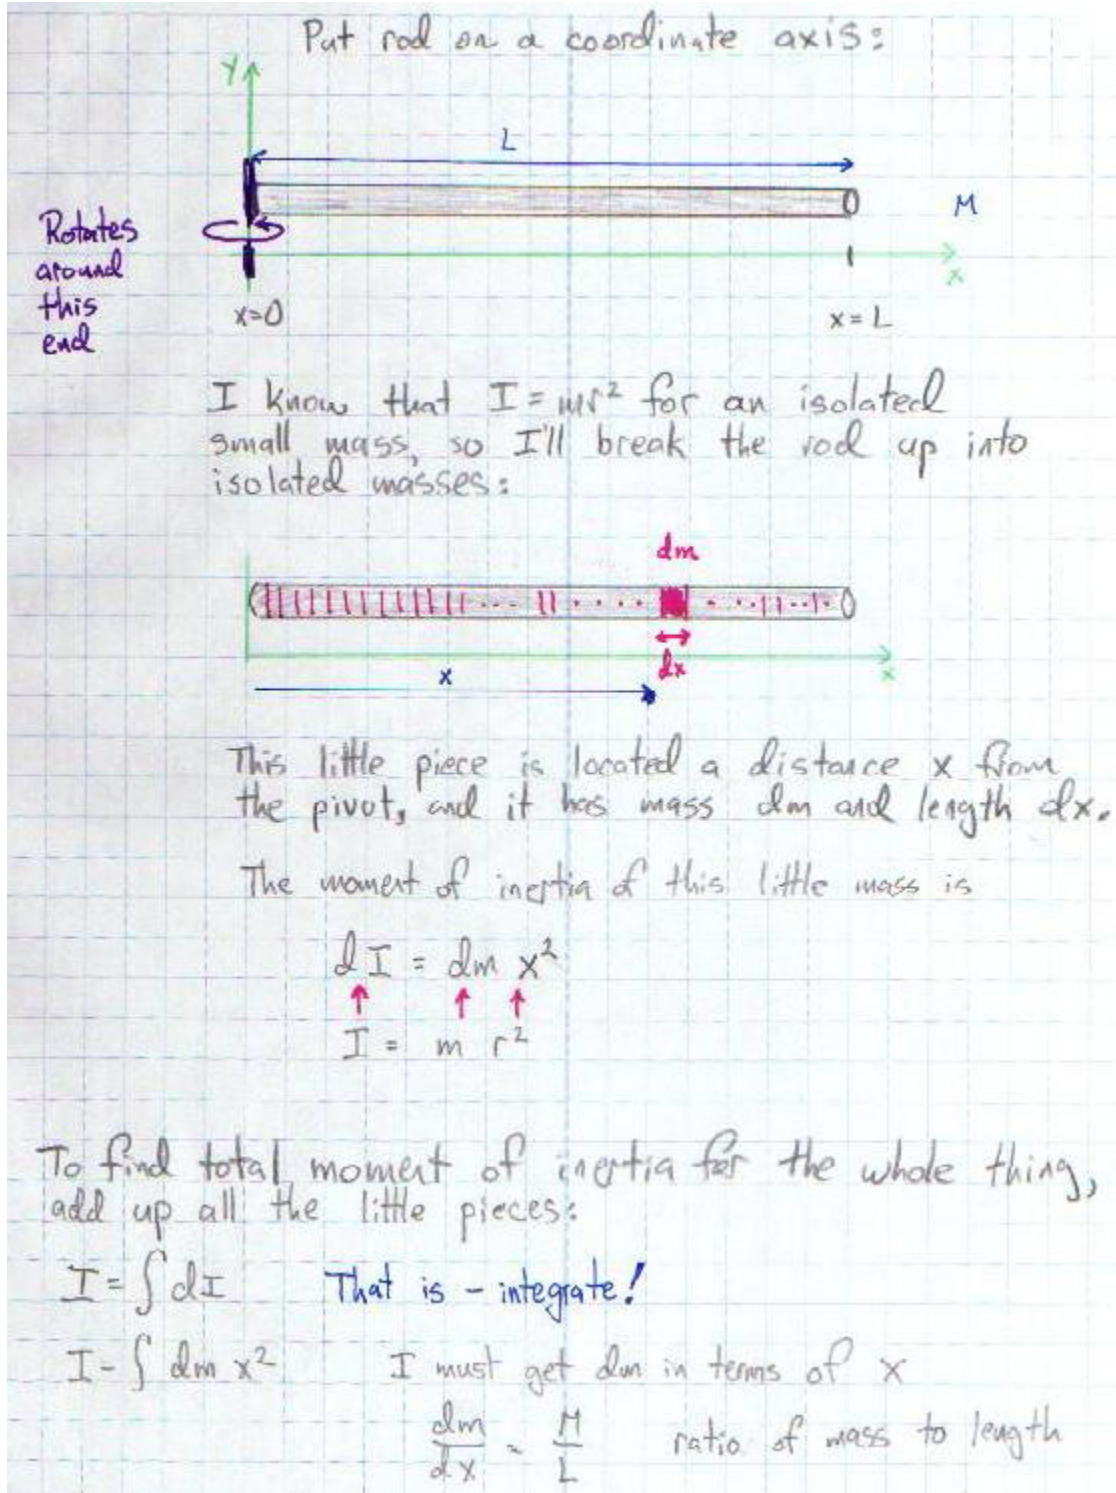 Put rod on a coordinate axis:
y
L
M
Rotates
around
this
end
x
x=0
x = L
I know that I = mr² for an isolated
small mass, so I'll break the rod up into
isolated masses:
dm
dx
x
x
This little piece is located a distance x from
the pivot, and it has mass dm and length dx.
The moment of inertia of this little mass is
dI = dm x²
I = m r²
To find total moment of inertia for the whole thing,
add up all the little pieces:
I = ∫ dI That is - integrate!
I - ∫ dm x² I must get dm in terms of x
dm/dx = M/L ratio of mass to length